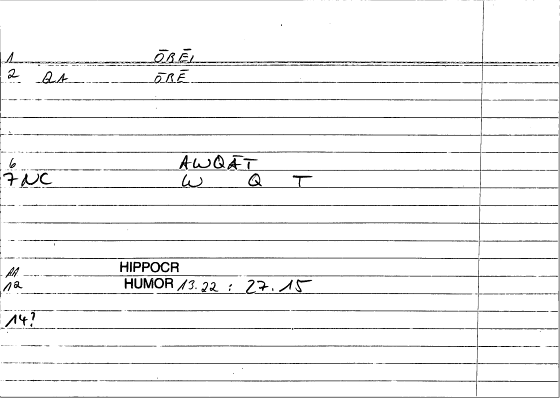 1 ŌBĒI
2 QA ŌBĒ
6 AWQĀT
7 NC W Q T
11 HIPPOCR
12 HUMOR 13.22 : 27.15
14?